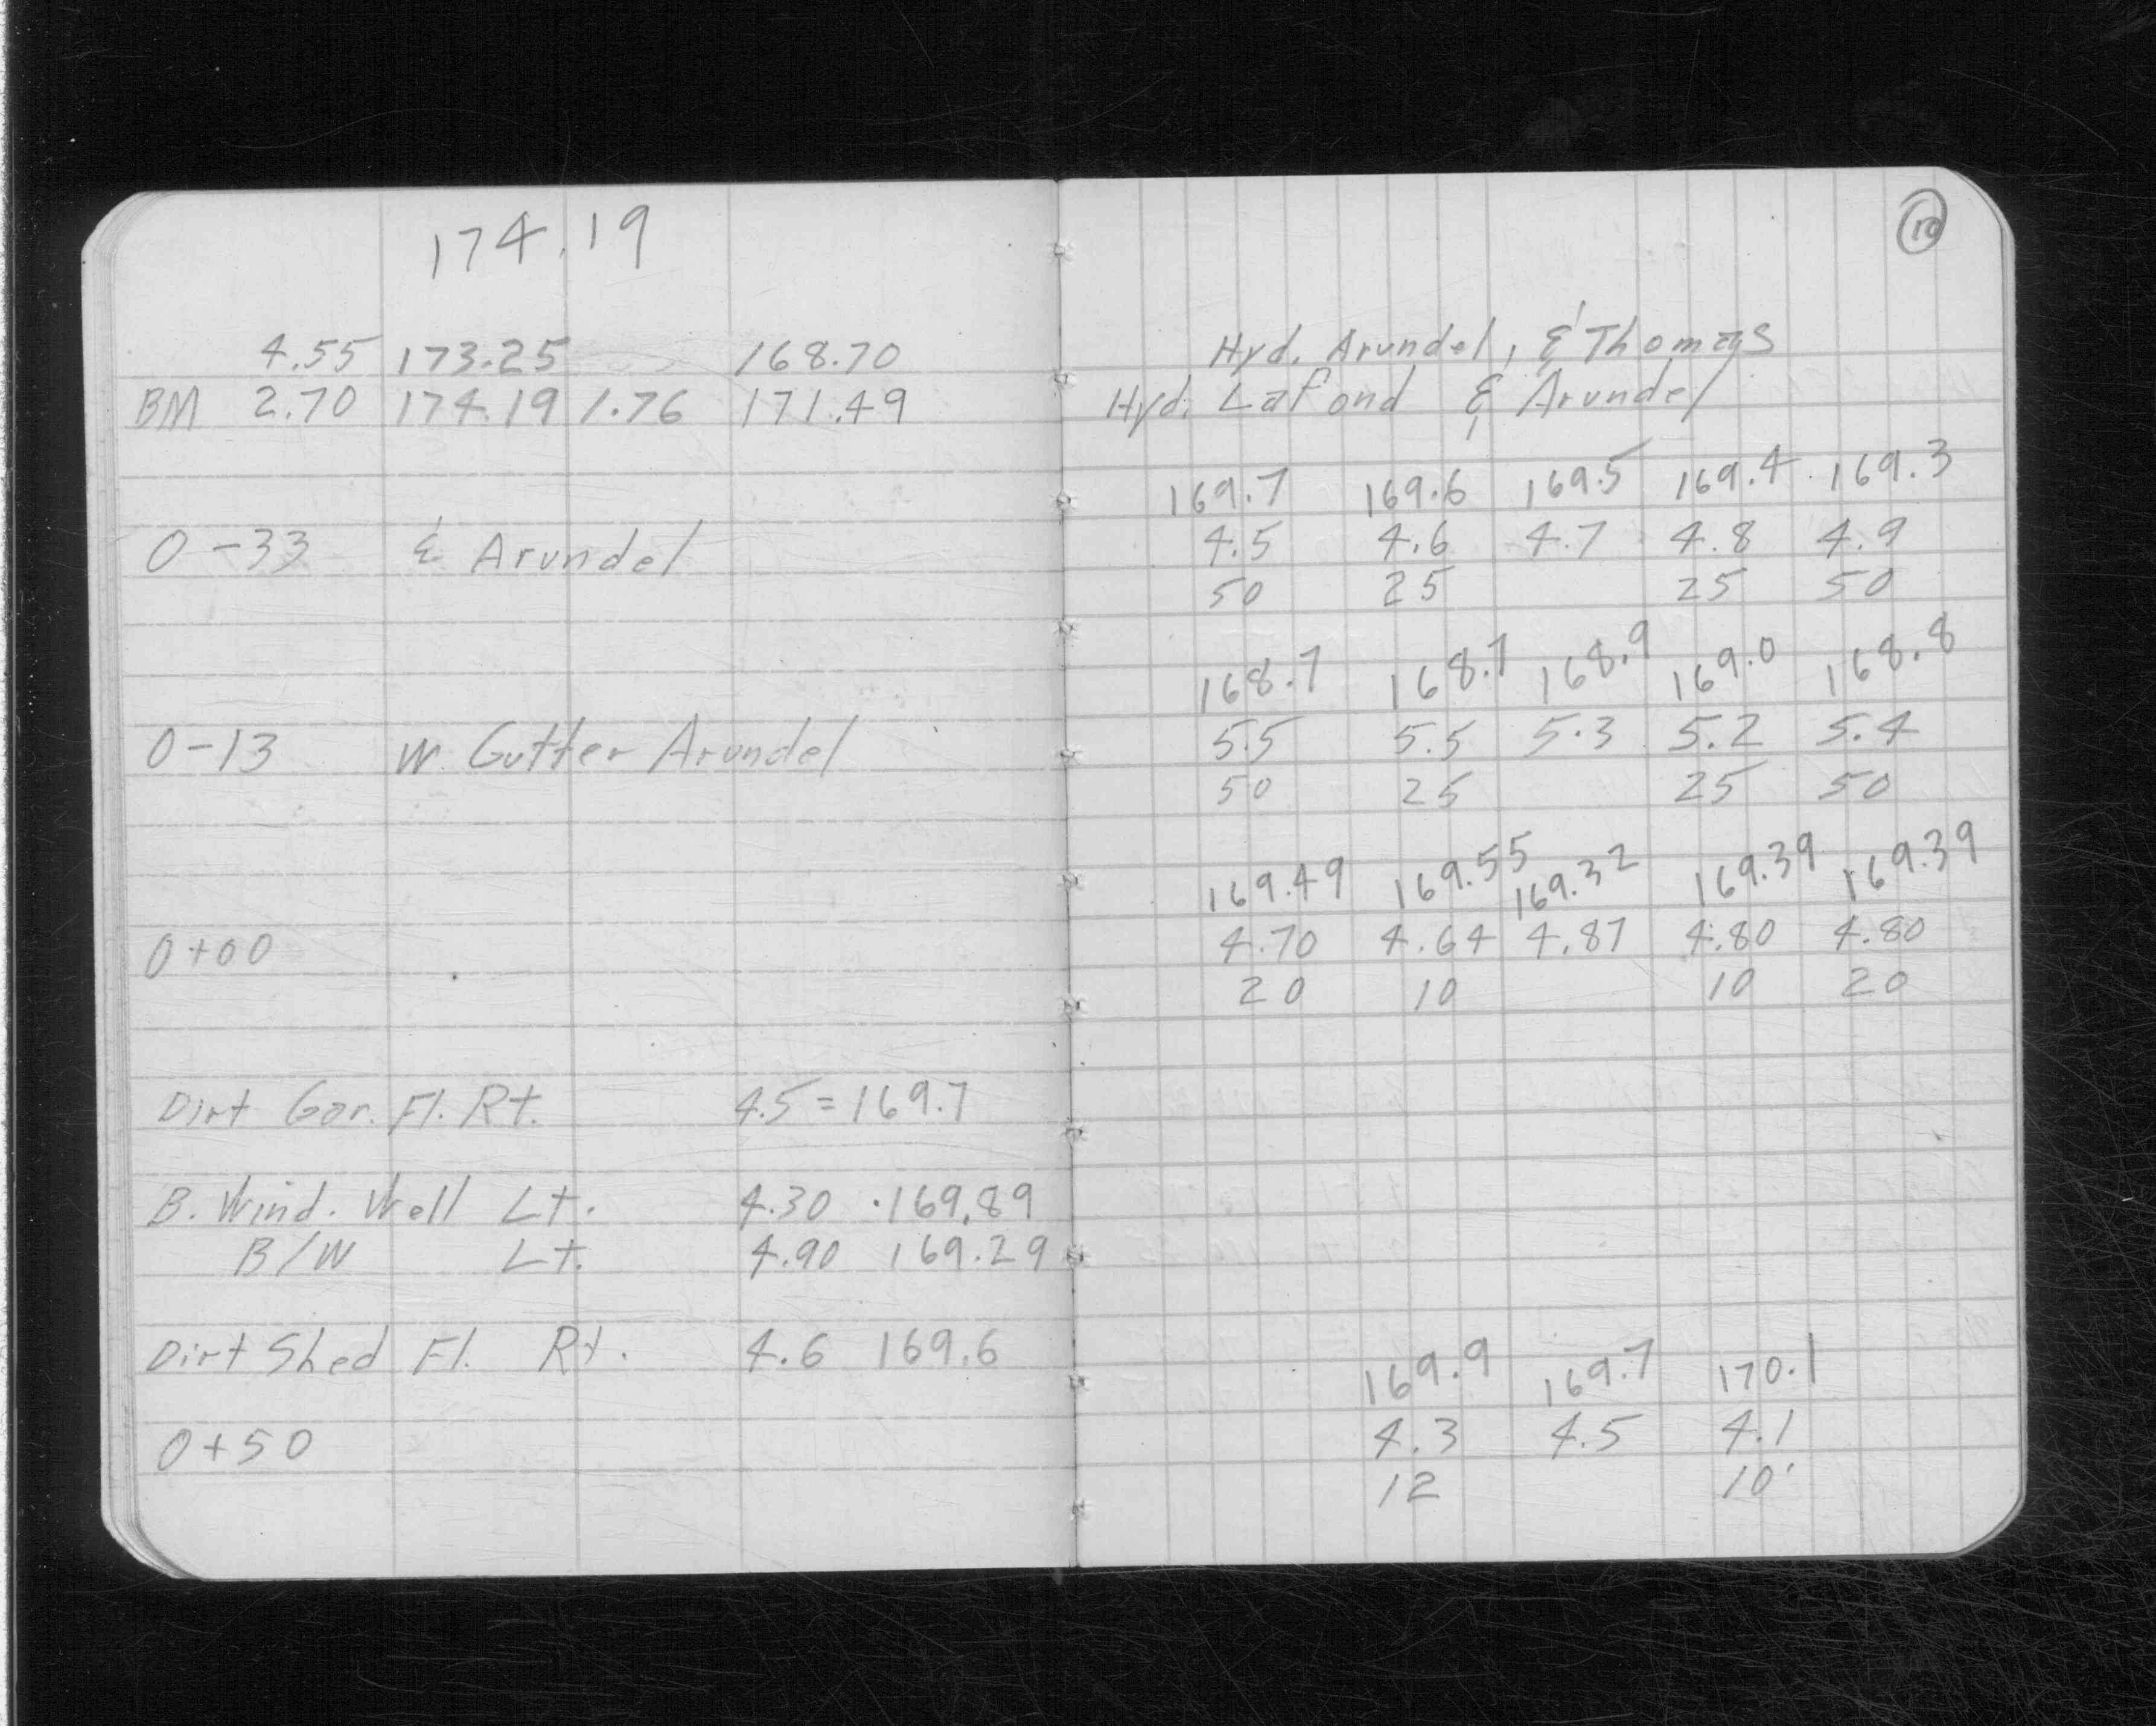 174.19
4.55 173.25 168.70
BM 2.70 174.19 1.76 171.49
0-33 & Arundel
0-13 W. Gutter Arundel
0+00
Dirt Gar. Fl. Rt. 4.5 = 169.7
B. Wind. Well Lt. 4.30 169.89
B/W Lt. 4.90 169.29
Dirt Shed Fl. Rt. 4.6 169.6
0+50
10
Hyd. Arundel, & Thomas
Hyd. Lafond & Arundel
169.7 169.6 169.5 169.4 169.3
4.5 4.6 4.7 4.8 4.9
50 25 25 50
168.7 168.7 168.9 169.0 168.8
5.5 5.5 5.3 5.2 5.4
50 25 25 50
169.49 169.55 169.32 169.39 169.39
4.70 4.64 4.87 4.80 4.80
20 10 10 20
169.9 169.7 170.1
4.3 4.5 4.1
12 10'